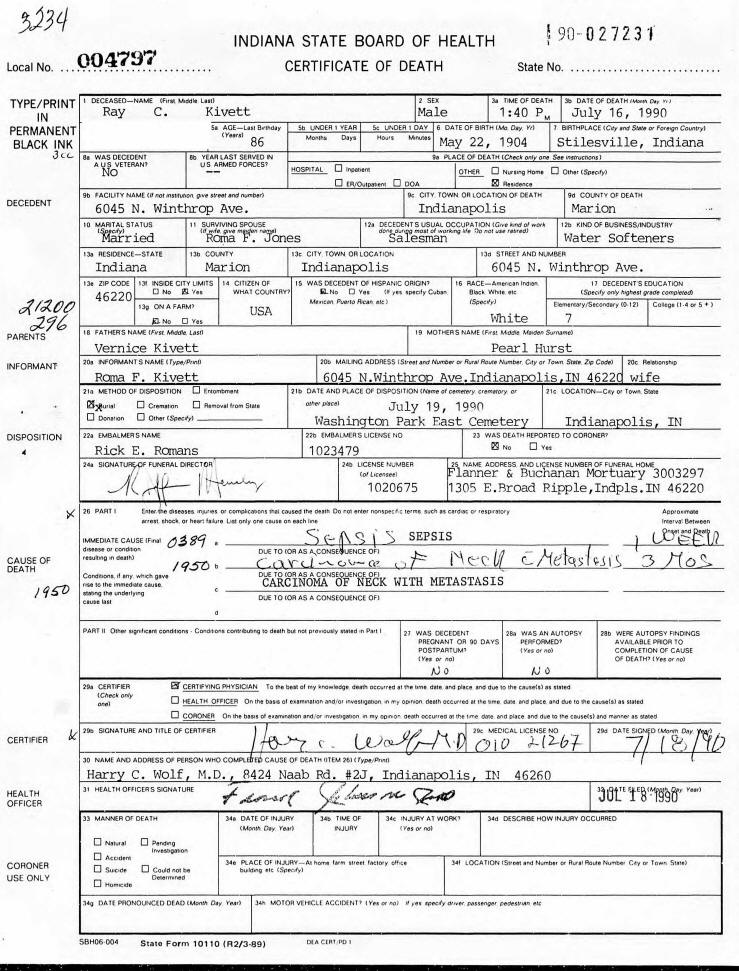 3234
INDIANA STATE BOARD OF HEALTH
90-027231
Local No. 004797
CERTIFICATE OF DEATH
State No.
TYPE/PRINT IN PERMANENT BLACK INK
3cc
1 DECEASED—NAME (First, Middle, Last)
Ray C. Kivett
2 SEX
Male
3a TIME OF DEATH
1:40 P M
3b DATE OF DEATH (Month, Day, Yr.)
July 16, 1990
5a AGE—Last Birthday (Years)
86
5b UNDER 1 YEAR
Months Days
5c UNDER 1 DAY
Hours Minutes
6 DATE OF BIRTH (Mo. Day, Yr)
May 22, 1904
7 BIRTHPLACE (City and State or Foreign Country)
Stilesville, Indiana
8a WAS DECEDENT A U.S. VETERAN?
No
8b YEAR LAST SERVED IN U.S. ARMED FORCES?
--
9a PLACE OF DEATH (Check only one. See instructions)
HOSPITAL Inpatient
ER/Outpatient DOA
OTHER Nursing Home Other (Specify)
Residence
DECEDENT
9b FACILITY NAME (If not institution, give street and number)
6045 N. Winthrop Ave.
9c CITY, TOWN OR LOCATION OF DEATH
Indianapolis
9d COUNTY OF DEATH
Marion
10 MARITAL STATUS (Specify)
Married
11 SURVIVING SPOUSE (If wife, give maiden name)
Roma F. Jones
12a DECEDENT'S USUAL OCCUPATION (Give kind of work done during most of working life. Do not use retired)
Salesman
12b KIND OF BUSINESS/INDUSTRY
Water Softeners
13a RESIDENCE—STATE
Indiana
13b COUNTY
Marion
13c CITY, TOWN, OR LOCATION
Indianapolis
13d STREET AND NUMBER
6045 N. Winthrop Ave.
13e ZIP CODE
46220
13f INSIDE CITY LIMITS
No Yes
13g ON A FARM?
No Yes
14 CITIZEN OF WHAT COUNTRY?
USA
15 WAS DECEDENT OF HISPANIC ORIGIN?
No Yes (If yes, specify Cuban, Mexican, Puerto Rican, etc.)
16 RACE—American Indian, Black, White, etc (Specify)
White
17 DECEDENT'S EDUCATION
(Specify only highest grade completed)
Elementary/Secondary (0-12) College (1-4 or 5+)
7
21200
296
PARENTS
18 FATHER'S NAME (First, Middle, Last)
Vernice Kivett
19 MOTHER'S NAME (First, Middle, Maiden Surname)
Pearl Hurst
INFORMANT
20a INFORMANT'S NAME (Type/Print)
Roma F. Kivett
20b MAILING ADDRESS (Street and Number or Rural Route Number, City or Town, State, Zip Code)
6045 N.Winthrop Ave.Indianapolis,IN 46220
20c Relationship
wife
21a METHOD OF DISPOSITION Entombment
Burial Cremation Removal from State
Donation Other (Specify)
21b DATE AND PLACE OF DISPOSITION (Name of cemetery, crematory, or other place)
July 19, 1990
Washington Park East Cemetery
21c LOCATION—City or Town, State
Indianapolis, IN
DISPOSITION
22a EMBALMER'S NAME
Rick E. Romans
22b EMBALMER'S LICENSE NO
1023479
23 WAS DEATH REPORTED TO CORONER?
No Yes
24a SIGNATURE OF FUNERAL DIRECTOR
24b LICENSE NUMBER (of Licensee)
1020675
25 NAME, ADDRESS, AND LICENSE NUMBER OF FUNERAL HOME
Flanner & Buchanan Mortuary 3003297
1305 E.Broad Ripple,Indpls.IN 46220
X
26 PART I Enter the diseases, injuries or complications that caused the death. Do not enter nonspecific terms, such as cardiac or respiratory arrest, shock, or heart failure. List only one cause on each line
Approximate Interval Between Onset and Death
CAUSE OF DEATH
IMMEDIATE CAUSE (Final disease or condition resulting in death)
0389 a Sepsis SEPSIS 1 WEEK
DUE TO (OR AS A CONSEQUENCE OF)
1950 b Carcinoma of Neck c Metastasis 3 MOS
DUE TO (OR AS A CONSEQUENCE OF)
Conditions, if any, which gave rise to the immediate cause, stating the underlying cause last
1950
c CARCINOMA OF NECK WITH METASTASIS
DUE TO (OR AS A CONSEQUENCE OF)
d
PART II Other significant conditions - Conditions contributing to death but not previously stated in Part I
27 WAS DECEDENT PREGNANT OR 90 DAYS POSTPARTUM? (Yes or no)
NO
28a WAS AN AUTOPSY PERFORMED? (Yes or no)
NO
28b WERE AUTOPSY FINDINGS AVAILABLE PRIOR TO COMPLETION OF CAUSE OF DEATH? (Yes or no)
29a CERTIFIER (Check only one)
CERTIFYING PHYSICIAN To the best of my knowledge, death occurred at the time, date, and place, and due to the cause(s) as stated
HEALTH OFFICER On the basis of examination and/or investigation, in my opinion, death occurred at the time, date, and place, and due to the cause(s) as stated
CORONER On the basis of examination and/or investigation, in my opinion, death occurred at the time, date, and place, and due to the cause(s) and manner as stated
CERTIFIER X
29b SIGNATURE AND TITLE OF CERTIFIER
Harry C. Wolf M.D
29c MEDICAL LICENSE NO
010 21267
29d DATE SIGNED (Month, Day, Year)
7/18/90
30 NAME AND ADDRESS OF PERSON WHO COMPLETED CAUSE OF DEATH (ITEM 26) (Type/Print)
Harry C. Wolf, M.D., 8424 Naab Rd. #2J, Indianapolis, IN 46260
HEALTH OFFICER
31 HEALTH OFFICER'S SIGNATURE
32 DATE FILED (Month, Day, Year)
JUL 18 1990
33 MANNER OF DEATH
Natural Pending Investigation
Accident
Suicide Could not be Determined
Homicide
34a DATE OF INJURY (Month, Day, Year)
34b TIME OF INJURY
34c INJURY AT WORK? (Yes or no)
34d DESCRIBE HOW INJURY OCCURRED
CORONER USE ONLY
34e PLACE OF INJURY—At home, farm, street, factory, office building, etc (Specify)
34f LOCATION (Street and Number or Rural Route Number, City or Town, State)
34g DATE PRONOUNCED DEAD (Month, Day, Year)
34h MOTOR VEHICLE ACCIDENT? (Yes or no) If yes, specify driver, passenger, pedestrian, etc
SBH06-004 State Form 10110 (R2/3-89) DEA CERT/PD 1